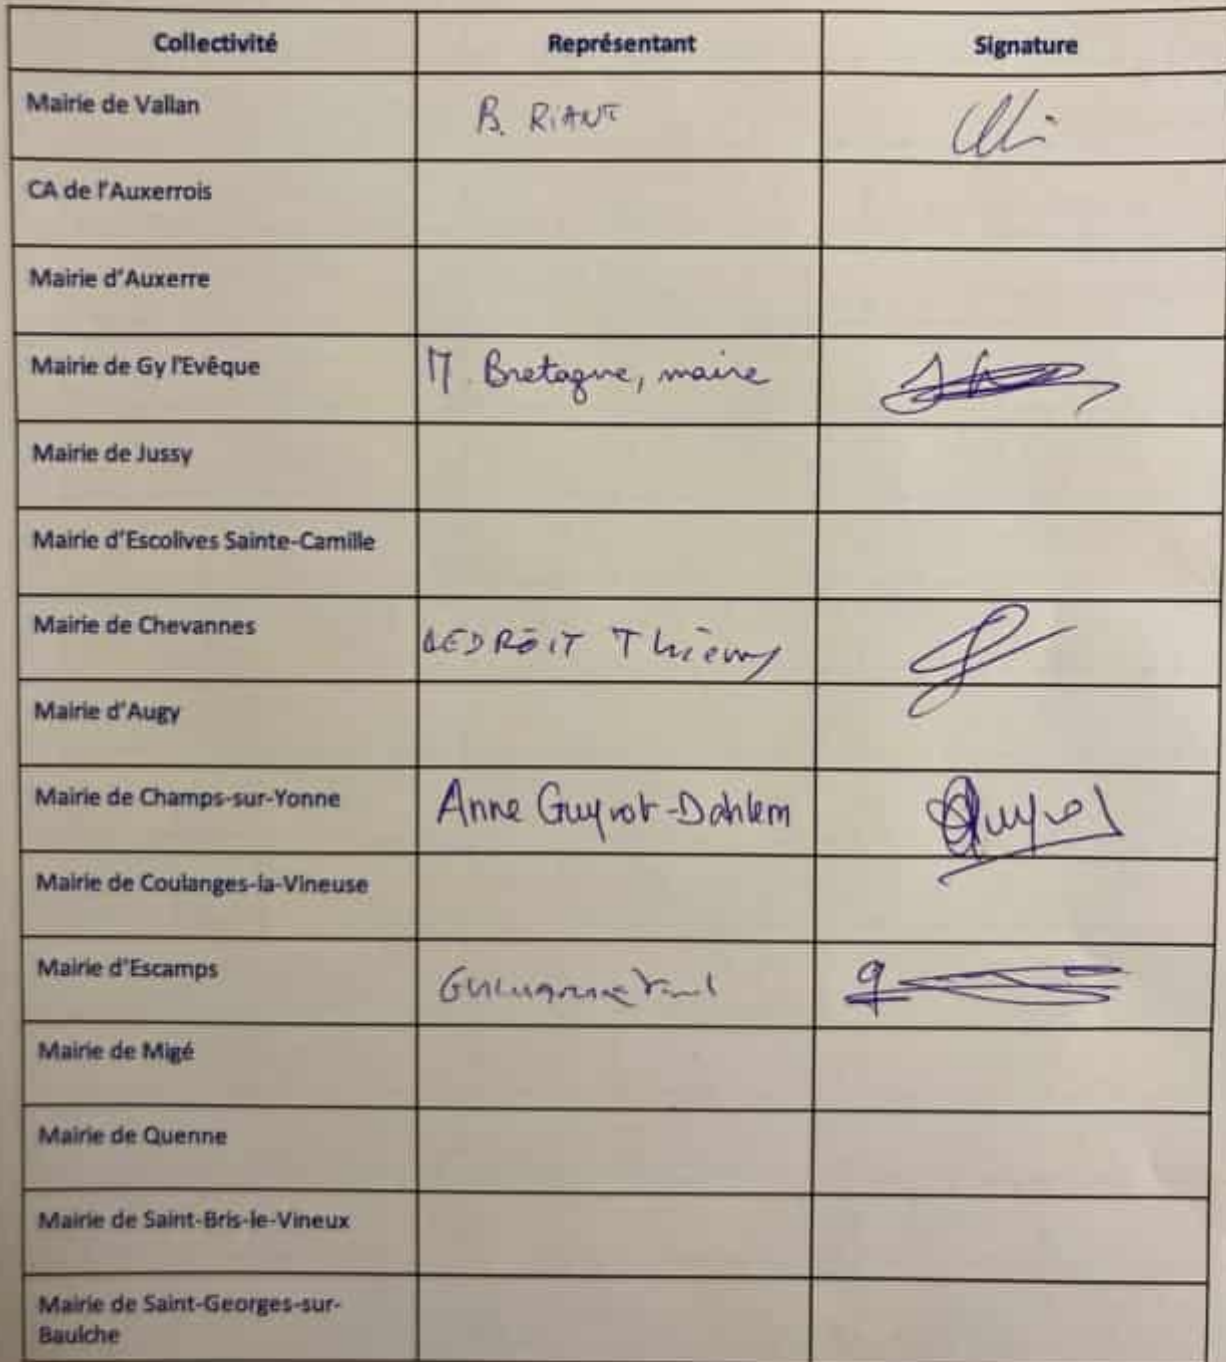 Collectivité Représentant Signature
Mairie de Vallan B. RIANT
CA de l'Auxerrois
Mairie d'Auxerre
Mairie de Gy l'Evêque M. Bretagne, maire
Mairie de Jussy
Mairie d'Escolives Sainte-Camille
Mairie de Chevannes LEDROIT Thierry
Mairie d'Augy
Mairie de Champs-sur-Yonne Anne Guyrot-Dahlem
Mairie de Coulanges-la-Vineuse
Mairie d'Escamps
Mairie de Migé
Mairie de Quenne
Mairie de Saint-Bris-le-Vineux
Mairie de Saint-Georges-sur-
Baulche